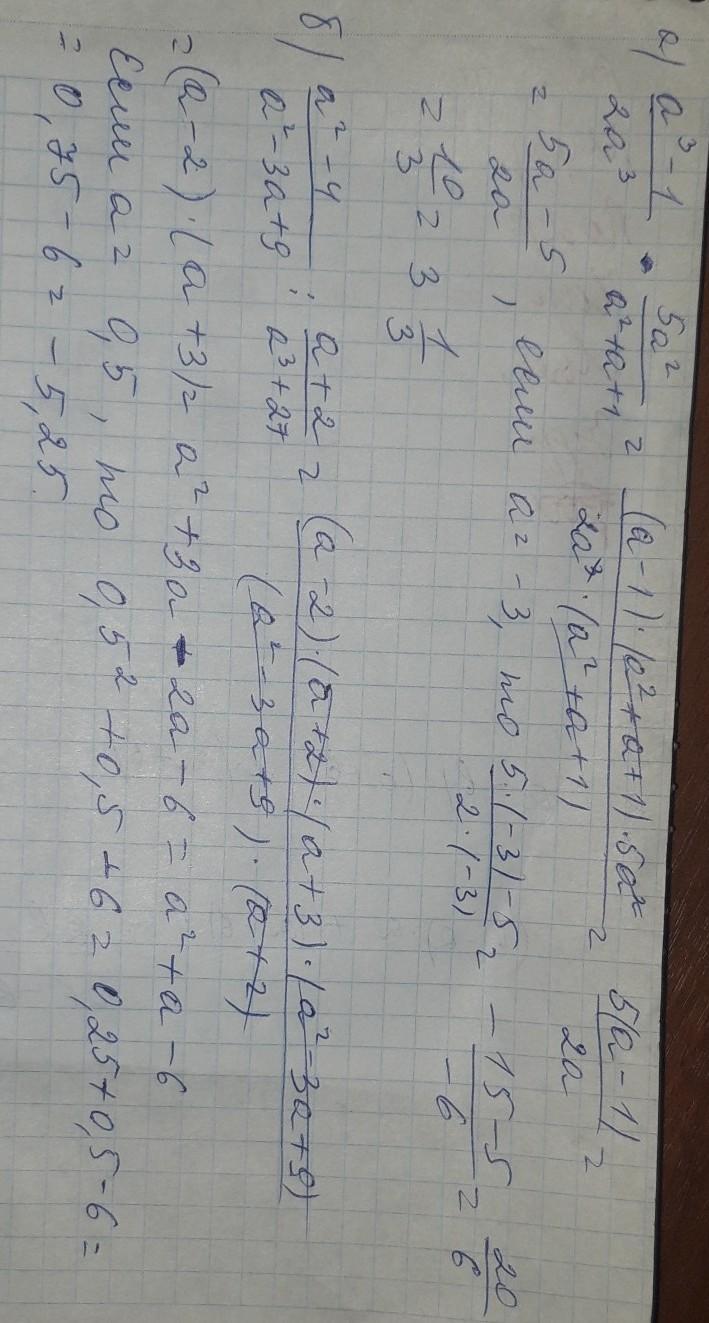 а) (a³ - 1)/(2a³) · (5a²)/(a² + a + 1) = ((a - 1)·(a² + a + 1)·5a²)/(2a³·(a² + a + 1)) = (5(a - 1))/(2a) =
= (5a - 5)/(2a), если a = -3, то (5·(-3) - 5)/(2·(-3)) = (-15 - 5)/(-6) = 20/6
= 10/3 = 3 1/3
б) (a² - 4)/(a² - 3a + 9) : (a + 2)/(a³ + 27) = ((a - 2)·(a + 2)·(a + 3)·(a² - 3a + 9))/((a² - 3a + 9)·(a + 2))
= (a - 2)·(a + 3) = a² + 3a - 2a - 6 = a² + a - 6
Если a = 0,5, то 0,5² + 0,5 - 6 = 0,25 + 0,5 - 6 =
= 0,75 - 6 = - 5,25.